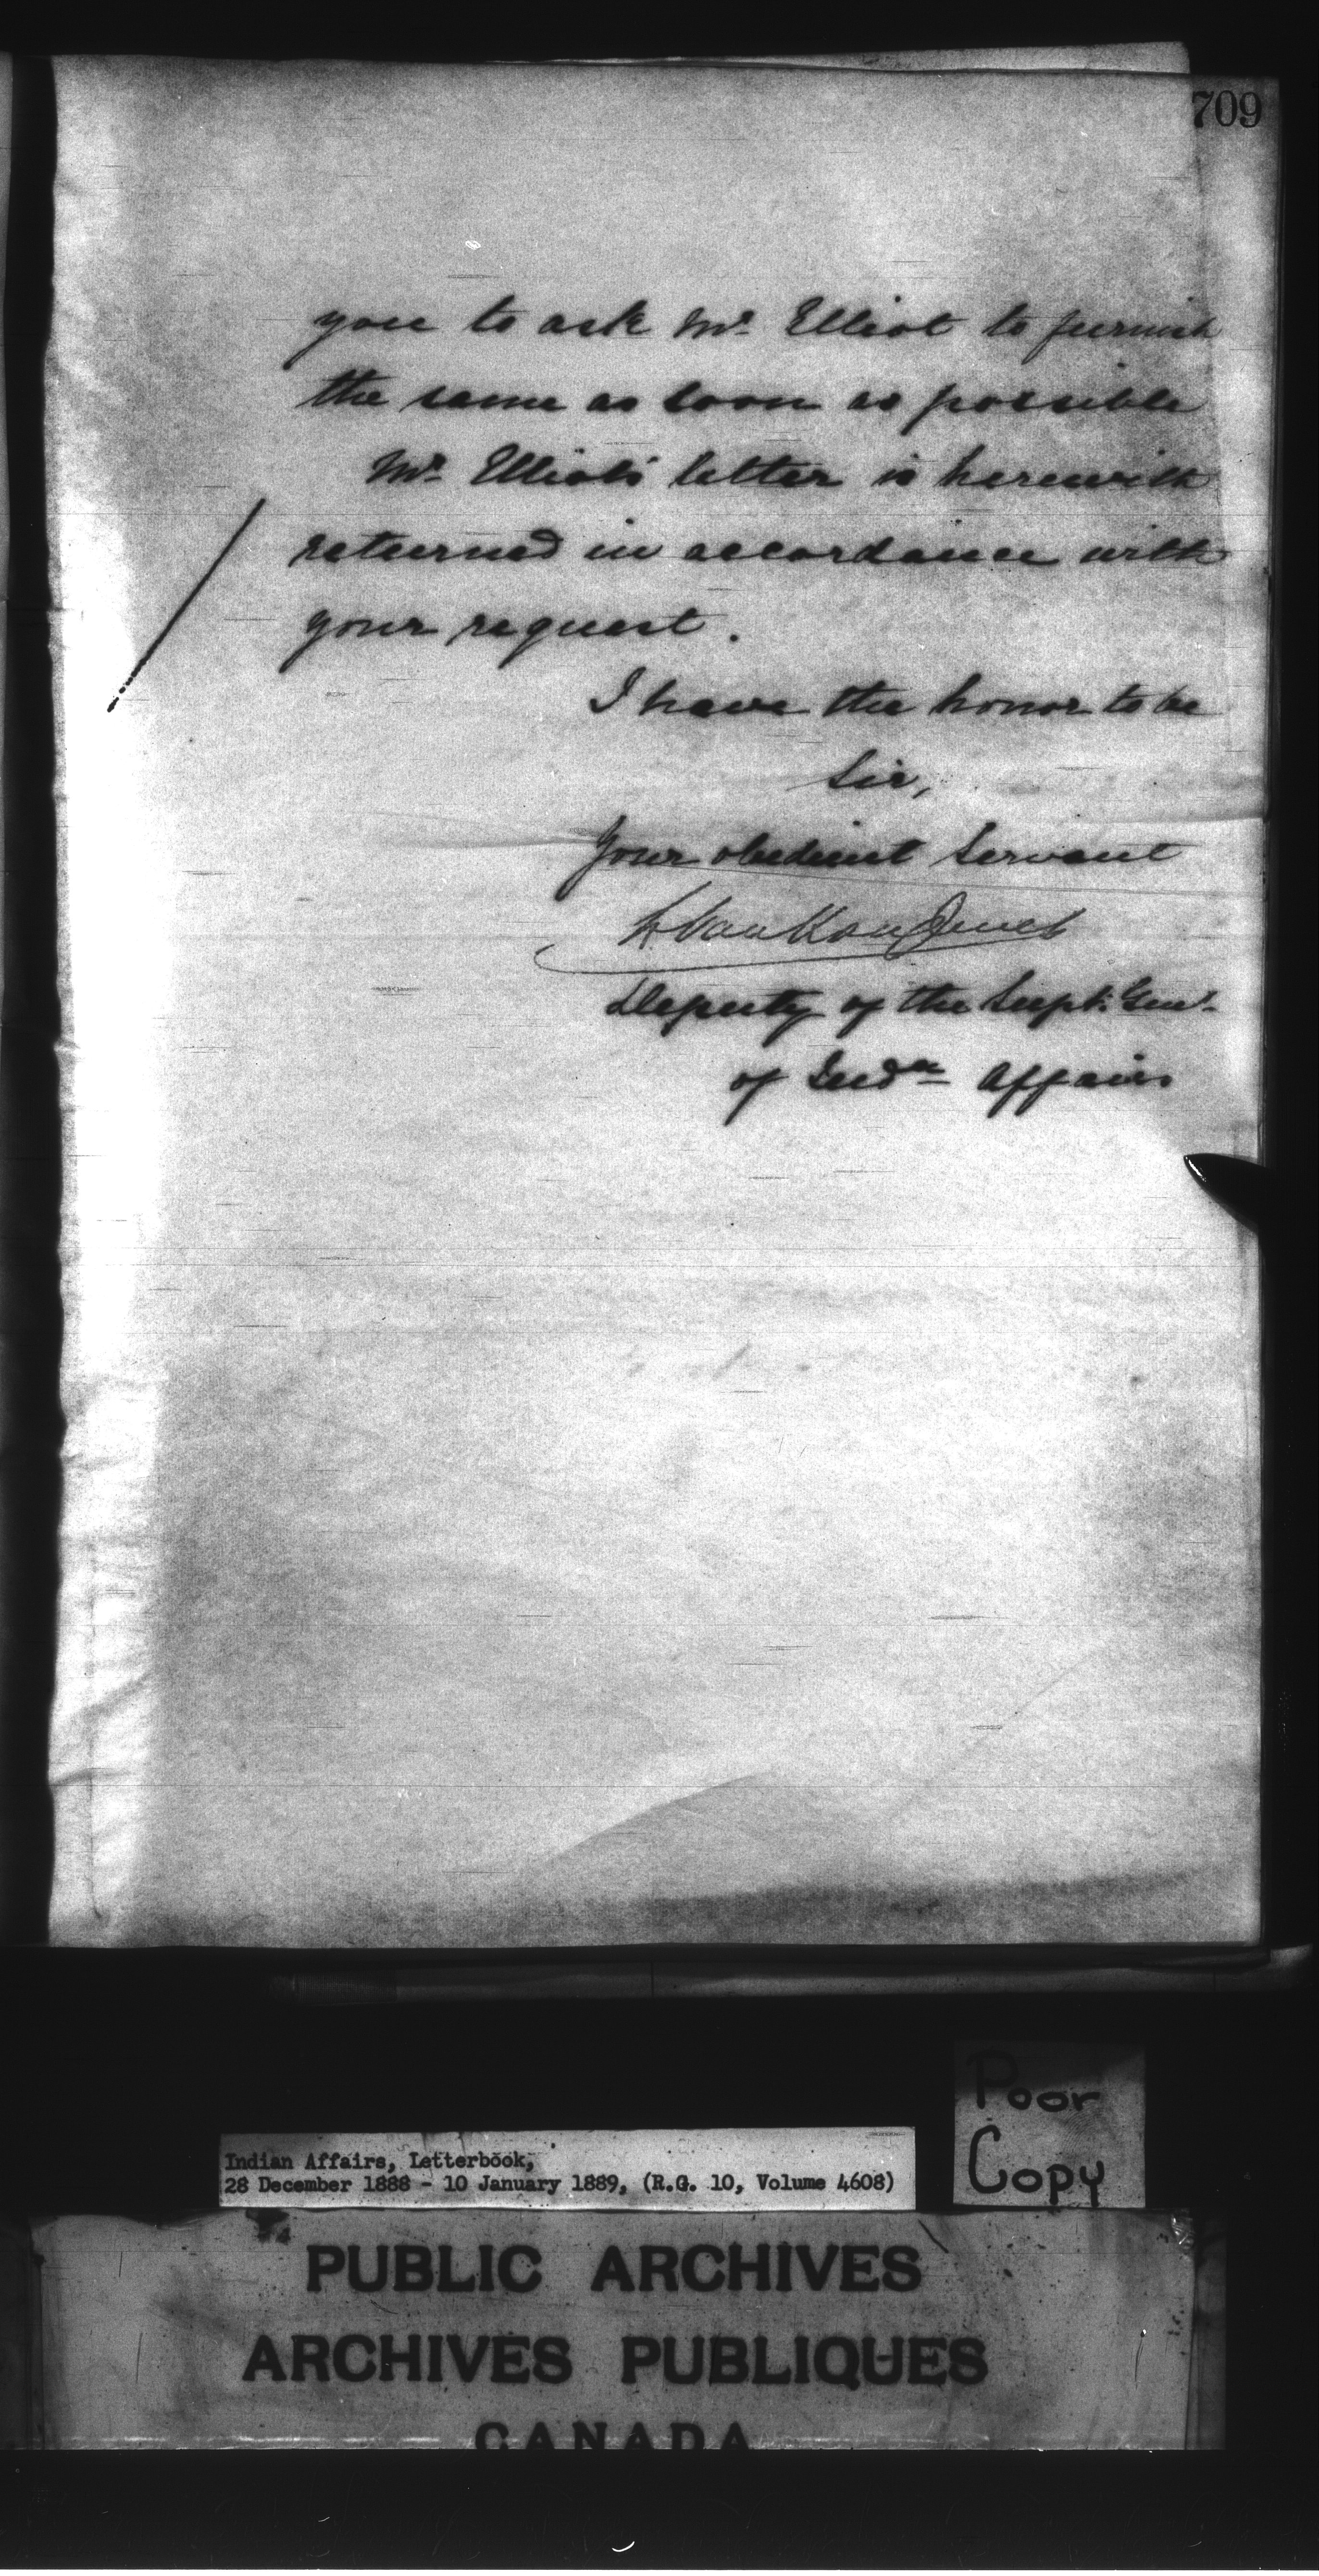 709
you to ask Mr. Elliot to furnish
the same as soon as possible
Mr. Elliot's letter is herewith
returned in accordance with
your request.
I have the honor to be
Sir,
Your obedient Servant
L VanKoughnet
Deputy of the Supt. Genl.
of Indn Affairs
Poor
Copy
Indian Affairs, Letterbook,
28 December 1888 - 10 January 1889, (R.G. 10, Volume 4608)
PUBLIC ARCHIVES
ARCHIVES PUBLIQUES
CANADA